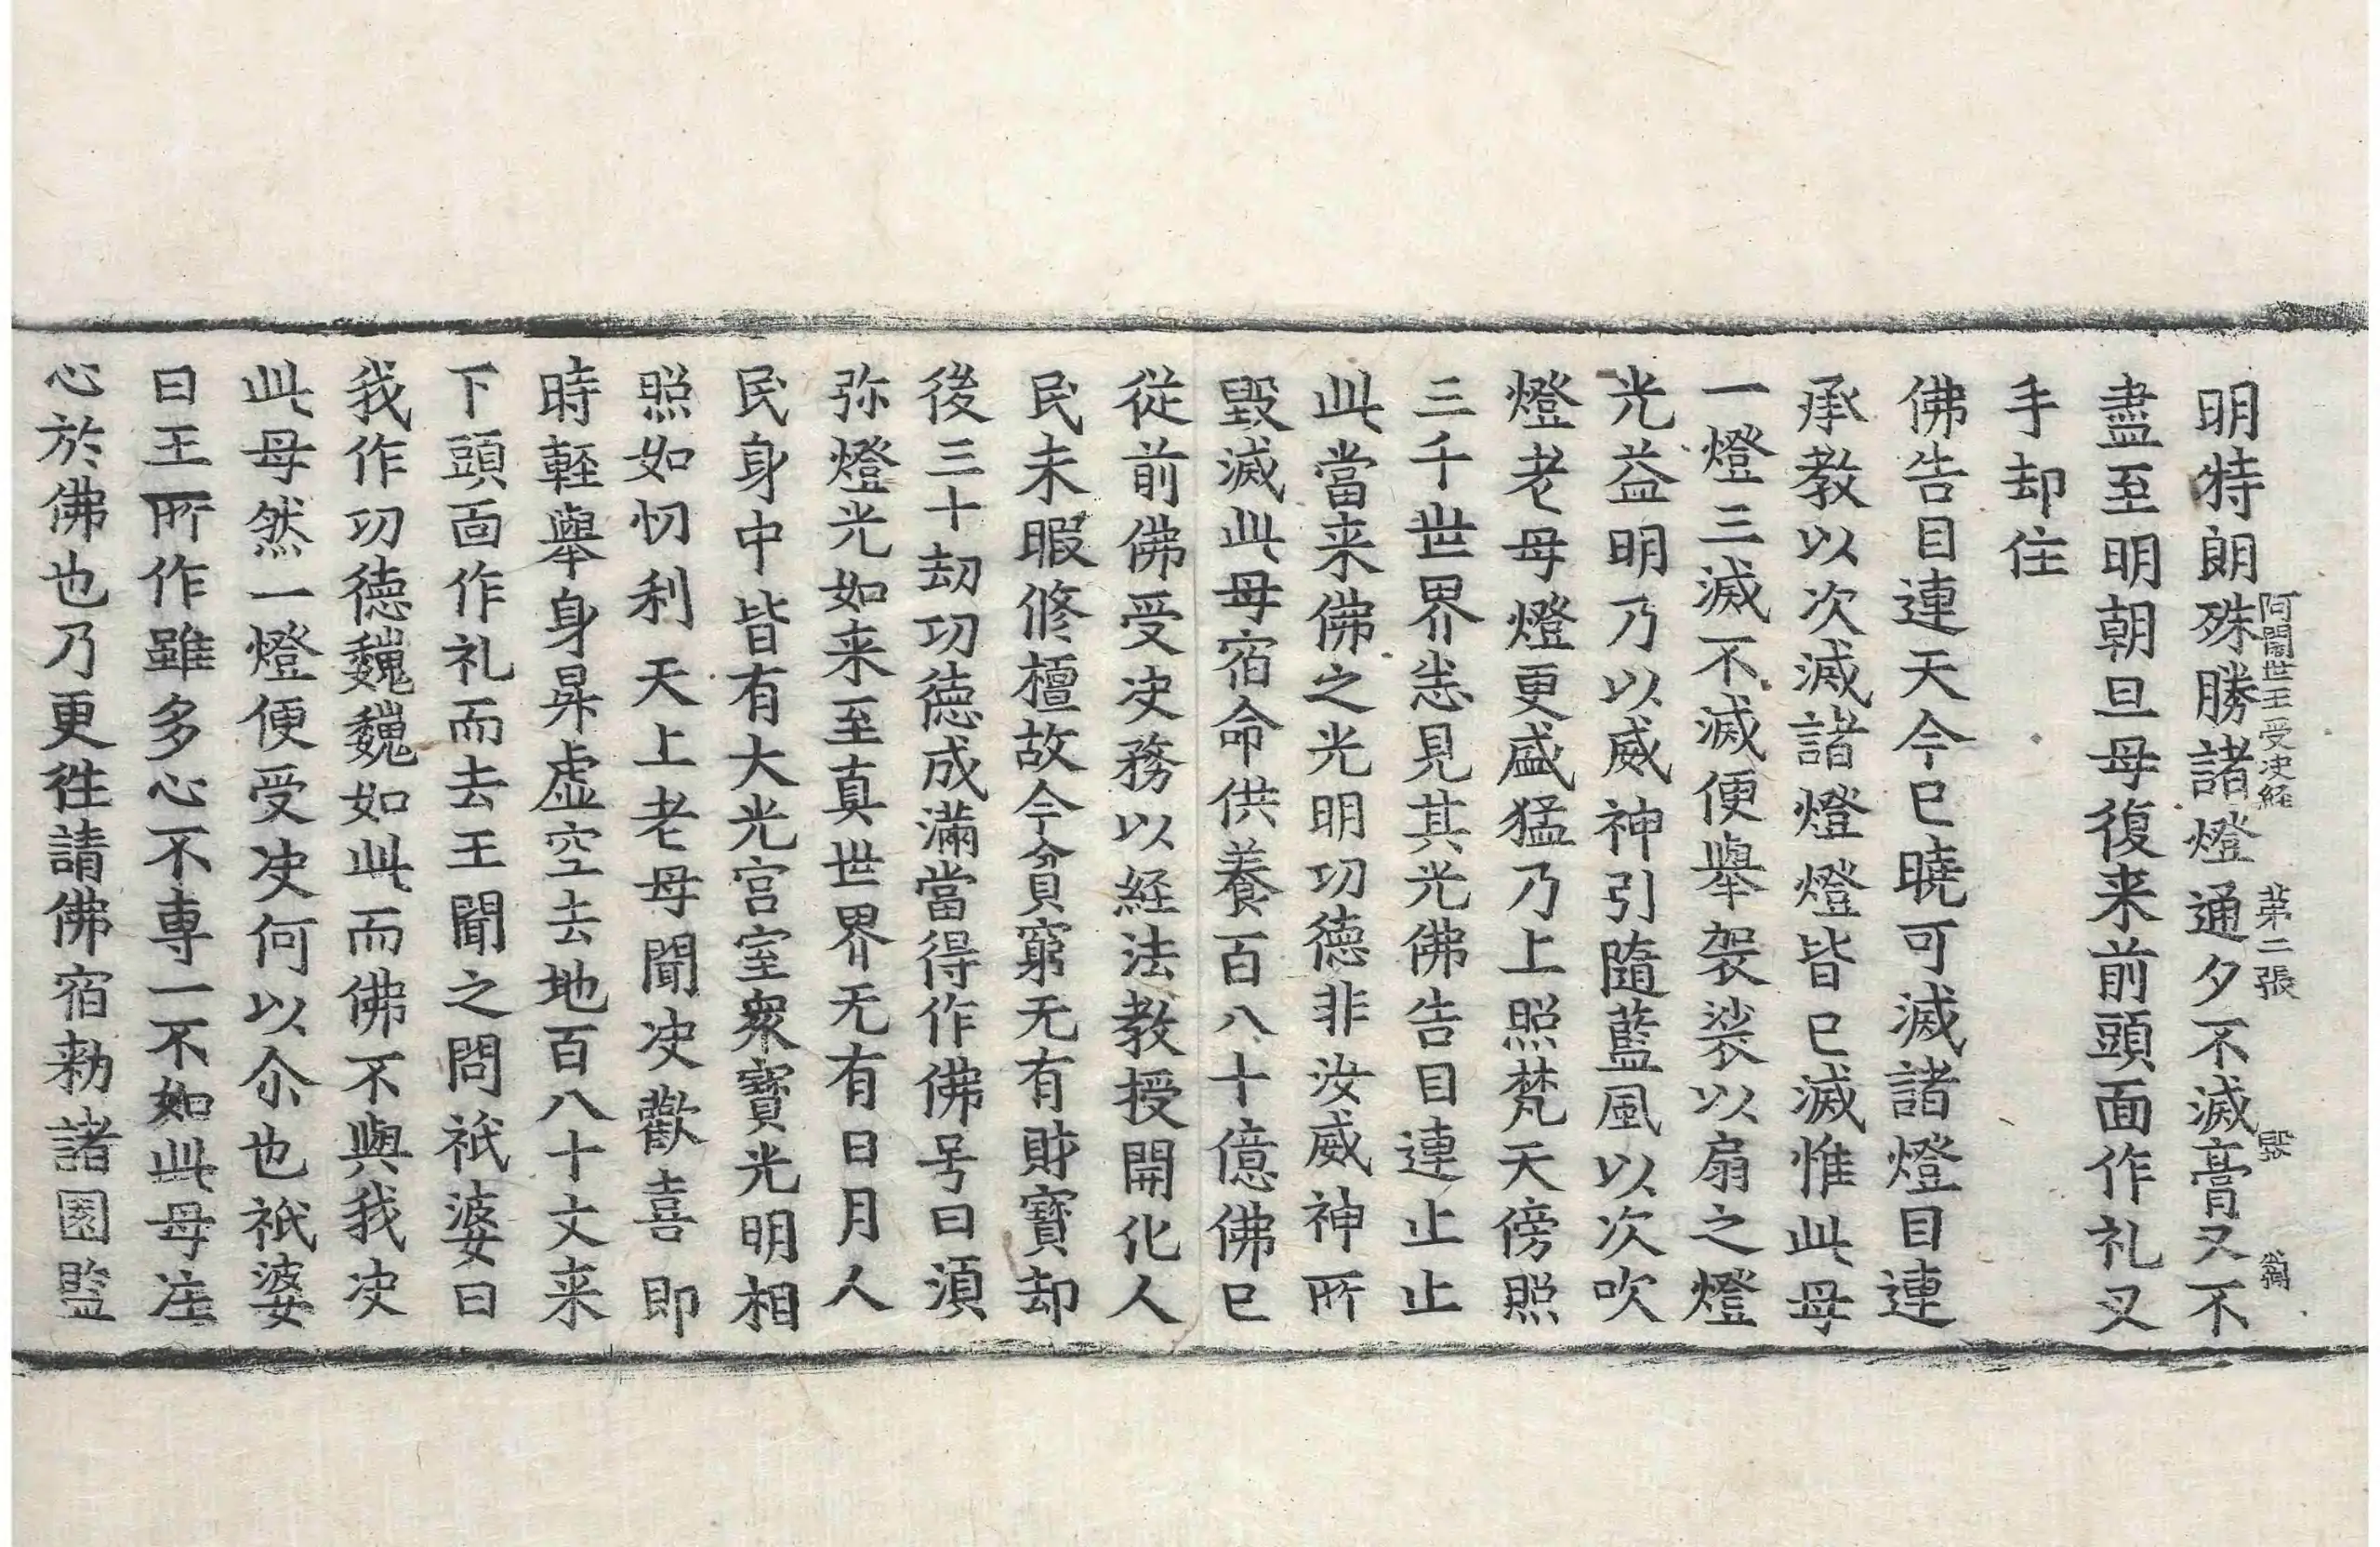 阿闍世王受决経 苐二張 毀
明特朗殊勝諸燈通夕不滅膏又不
盡至明朝旦母復来前頭面作礼叉
手却住
佛告目連天今已曉可滅諸燈目連
承教以次滅諸燈燈皆已滅惟此母
一燈三滅不滅便舉袈裟以扇之燈
光益明乃以威神引隨藍風以次吹
燈老母燈更盛猛乃上照梵天傍照
三千世界悉見其光佛告目連止止
此當来佛之光明功德非汝威神所
毀滅此母宿命供養百八十億佛已
從前佛受决務以経法教授開化人
民未暇修檀故今貧窮无有財寶却
後三十劫功德成滿當得作佛号曰湏
弥燈光如来至真世界无有日月人
民身中皆有大光宫室衆寶光明相
照如忉利天上老母聞决歡喜即
時軽舉身昇虚空去地百八十丈来
下頭面作礼而去王聞之問祇婆曰
我作功德巍巍如此而佛不與我决
此母然一燈便受决何以尒也祇婆
曰王所作雖多心不専一不如此母注
心於佛也乃更徃請佛宿勑諸園監